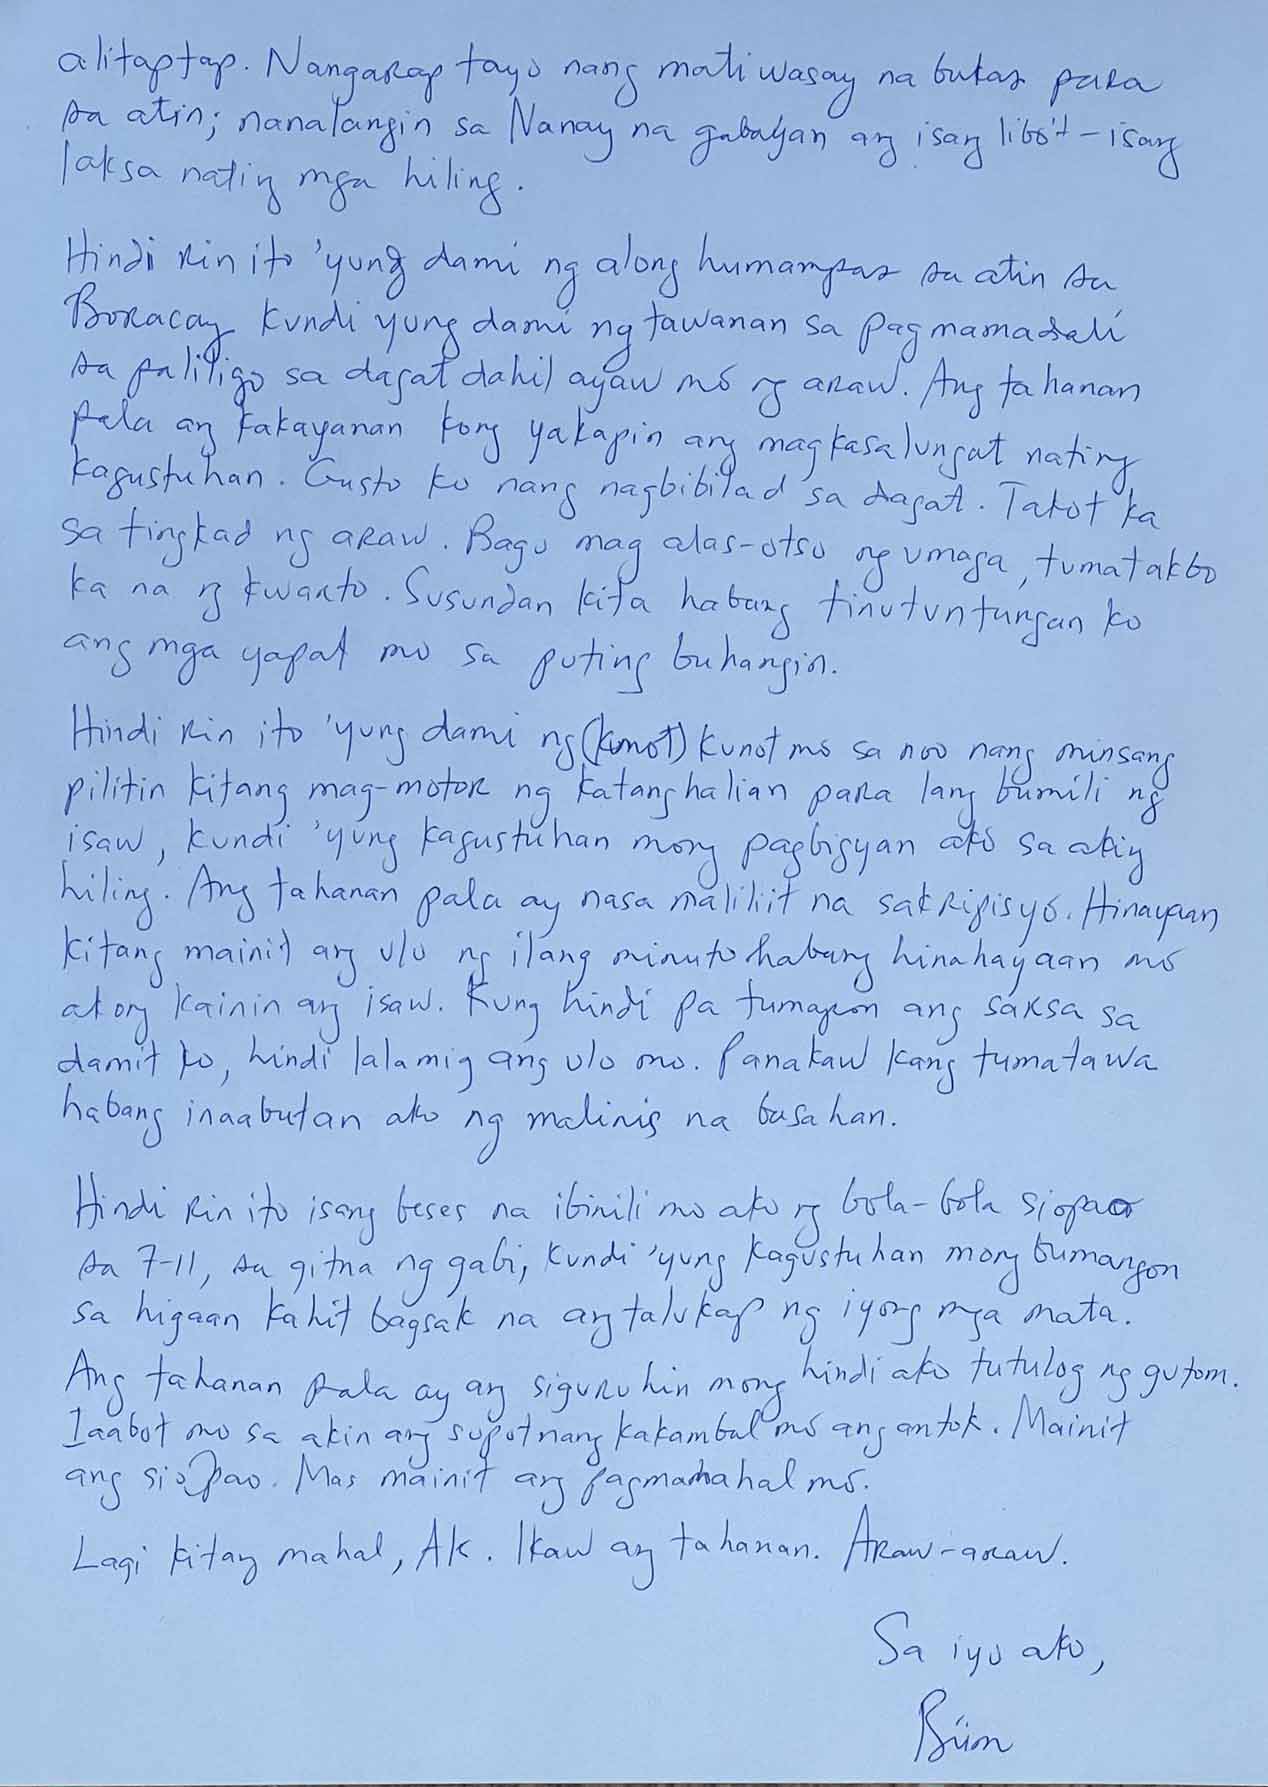 alitaptap. Nangarap tayo nang matiwasay na bukas para
sa atin; nanalangin sa Nanay na gabayan ang isang libo't-isang
laksa nating mga hiling.
Hindi rin ito 'yung dami ng along humampas sa atin sa
Boracay kundi yung dami ng tawanan sa pagmamadali
sa paliligo sa dagat dahil ayaw mo ng araw. Ang tahanan
pala ang kakayanan kong yakapin ang magkasalungat nating
kagustuhan. Gusto ko nang nagbibilad sa dagat. Takot ka
sa tingkad ng araw. Bago mag alas-otso ng umaga, tumatakbo
ka na ng kwarto. Susundan kita habang tinutuntungan ko
ang mga yapat mo sa puting buhangin.
Hindi rin ito 'yung dami ng (kunot) kunot mo sa noo nang minsang
pilitin kitang mag-motor ng katanghalian para lang bumili ng
isaw, kundi 'yung kagustuhan mong pagbigyan ako sa aking
hiling. Ang tahanan pala ay nasa maliliit na sakripisyo. Hinayaan
kitang mainit ang ulo ng ilang minuto habang hinahayaan mo
akong kainin ang isaw. Kung hindi pa tumapon ang saksa sa
damit ko, hindi lalamig ang ulo mo. Panakaw kang tumatawa
habang inaabutan ako ng malinis na basahan.
Hindi rin ito isang beses na ibinili mo ako ng bola-bola siopao
sa 7-11, sa gitna ng gabi, kundi 'yung kagustuhan mong bumangon
sa higaan kahit bagsak na ang talukap ng iyong mga mata.
Ang tahanan pala ay ang siguruhin mong hindi ako tutulog ng gutom.
Iaabot mo sa akin ang supot nang kakambal mo ang antok. Mainit
ang siopao. Mas mainit ang pagmamahal mo.
Lagi kitang mahal, AK. Ikaw ang tahanan. Araw-araw.
Sa iyo ako,